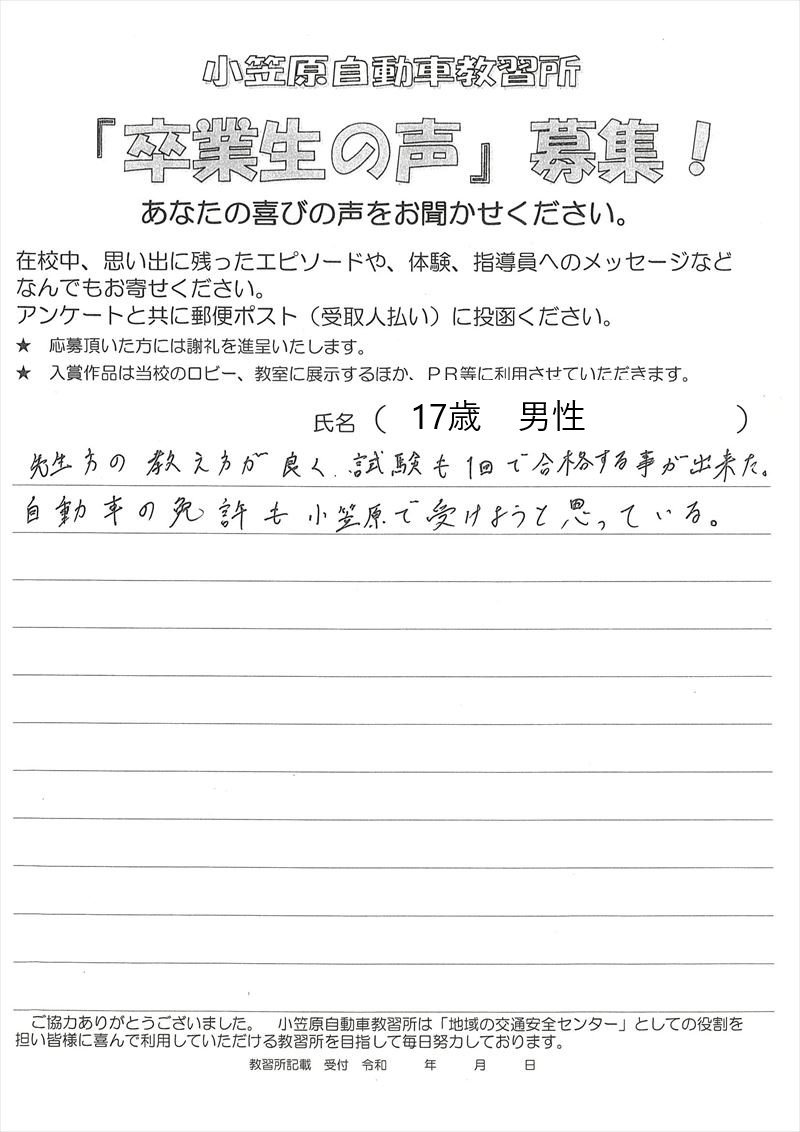 小笠原自動車教習所
『卒業生の声』募集！
あなたの喜びの声をお聞かせください。
在校中、思い出に残ったエピソードや、体験、指導員へのメッセージなど
なんでもお寄せください。
アンケートと共に郵便ポスト（受取人払い）に投函ください。
★　応募頂いた方には謝礼を進呈いたします。
★　入賞作品は当校のロビー、教室に展示するほか、ＰＲ等に利用させていただきます。
氏名（　17歳　男性　）
先生方の教え方が良く、試験も1回で合格する事が出来た。
自動車の免許も小笠原で受けようと思っている。
ご協力ありがとうございました。　小笠原自動車教習所は「地域の交通安全センター」としての役割を
担い皆様に喜んで利用していただける教習所を目指して毎日努力しております。
教習所記載　受付　令和　　年　　月　　日